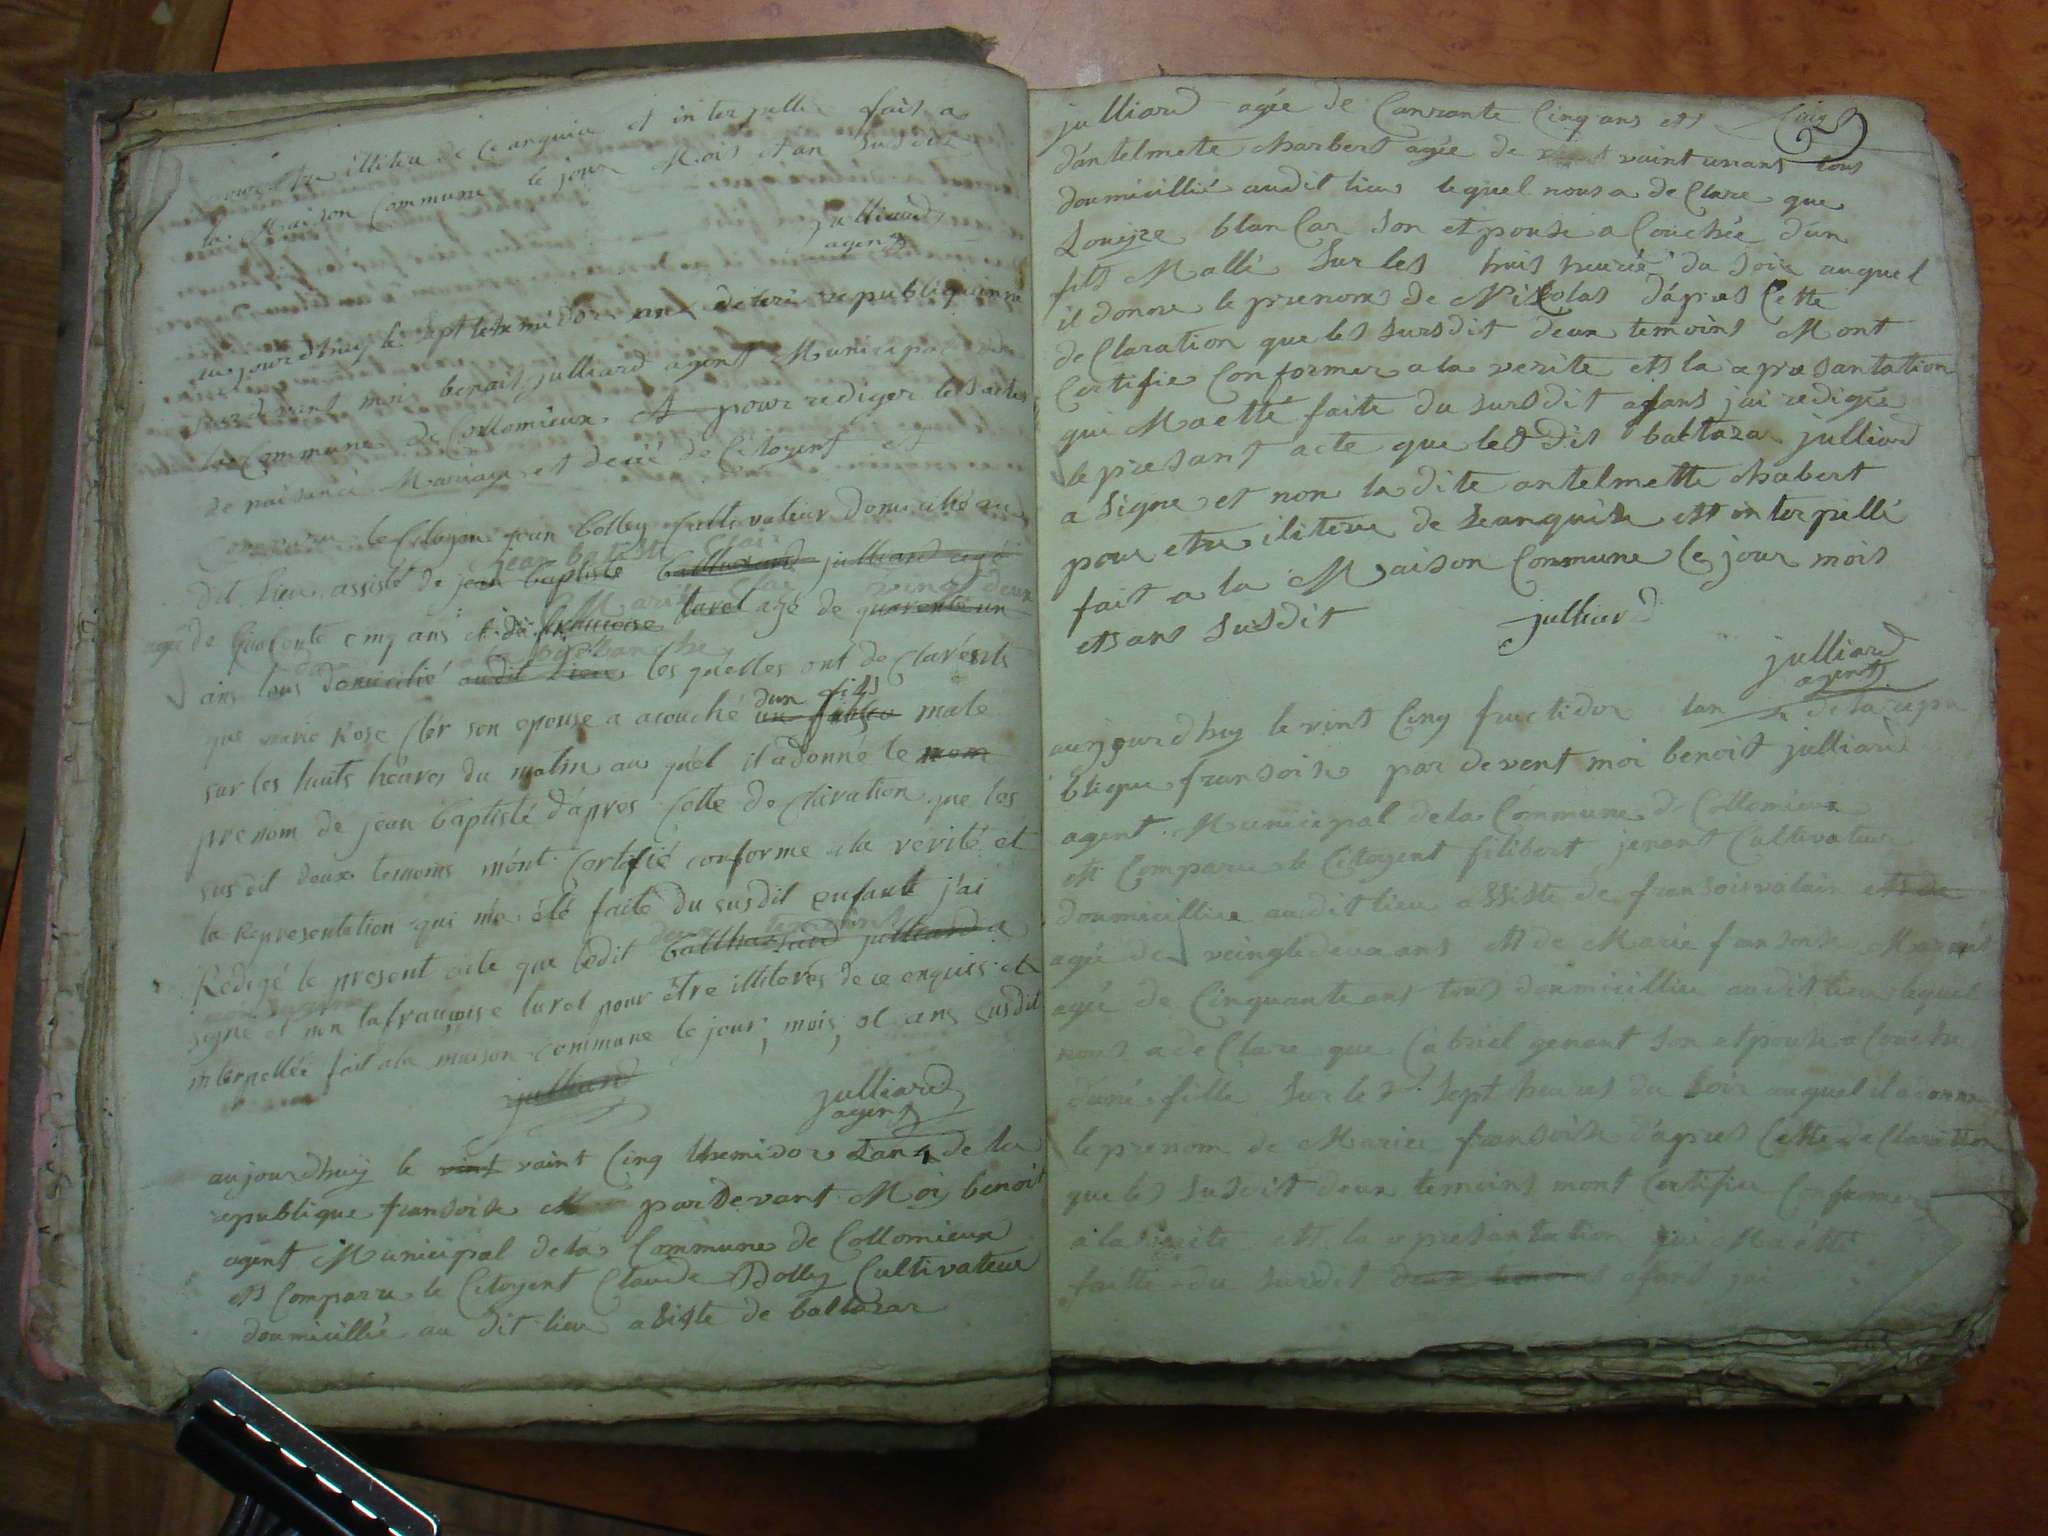 pour etre illiteu de ce anquice et interpelle fait a
la Maison Commune le jour Mois et an susdit
julliard
agent
aujourdhuy le sept thermidor de la republiquienne
pardevant moi benoit julliard agent Municipal
la Commune de Collomieux et pour rediger les actes
de naisance Mariage et decié de Citoyent et
Comparu le Citoyen jean bolley Cultivateur domicilié au
jean batiste Clair
dit Lieu assisté de jean baptiste balthazard julliard agée
Marie Clai vingt deux
agé de quarente cinq ans et de françoise turel agé de quarente un
blanche
ans tous domicilié audit Lieu les quelles ont declaré
que marie Rose Clér son epouse a acouché dun fils un male
sur les huits heures du matin au quel il a donné le nom
prenom de jean baptiste d'apres Cette declaration que les
sus dit deux temoins m'ont Certifié conforme a la verité et
la Representation qui m'a été faite du susdit enfant j'ai
deux temoins
Redigé le present acte que ledit balthazard julliard a
signé et non la françoise turel pour être illiterés de ce enquis et
interpellée fait a la maison commune le jour, mois, et ans susdit
julliard
julliard
agent
aujourdhuy le vint vaint Cinq thermidor Lan 4 de la
republique fransoise et pardevant Moy benoit
agent Municipal de la Commune de Collomieux
ets Comparu le Citoyent Claude Bolley Cultivateur
doumicillié au dit lieu asiste de baltazar
Cinq
julliard agée de Canrante Cinq ans ets
dantelmete charbert agée de vaint unans tous
doumicillié audit lieu lequel nous a declare que
Louise blancar son etpouse a Couchée dun
fils Malle sur les huis heures du soir auquel
il donne le prenoms de Nicolas dapres Cette
declaration que les sursdit deux temoins Mont
Certifie Conformer a la verite ets la represantation
qui Ma etté faite du sursdit afans jai redigée
le presant acte que les dit baltazar julliard
a signe et non la dite antelmette chabert
pour etre ilitere de seanquise ets interpellé
fait a la Maison Commune le jour mois
ets ans susdit
julliard
julliard
agent
aujourdhuy le vint Cinq fructidor lan de la repu
blique fransoise pardevent moi benoit julliard
agent Municipal de la Commune de Collomieux
ets Comparu le Citoyent filibert jenant Cultivateur
doumicillier audit lieu assiste de fransois valain ets de
agée de veingtdeux ans ets de Marie fransoise
agée de Cinquante ans tous doumicillier audit lieu lequel
nous a declare que Cabriel genant son etpouse a Couchu
dune fille sur le sept heures du soir auquel il a donne
le prenom de Marie fransoise dapres Cette declaration
que les susdit deux temoins mont Certifier Conformer
a la verite ets la represantation qui Ma étté
faitte du surdit deux temoins afans jai